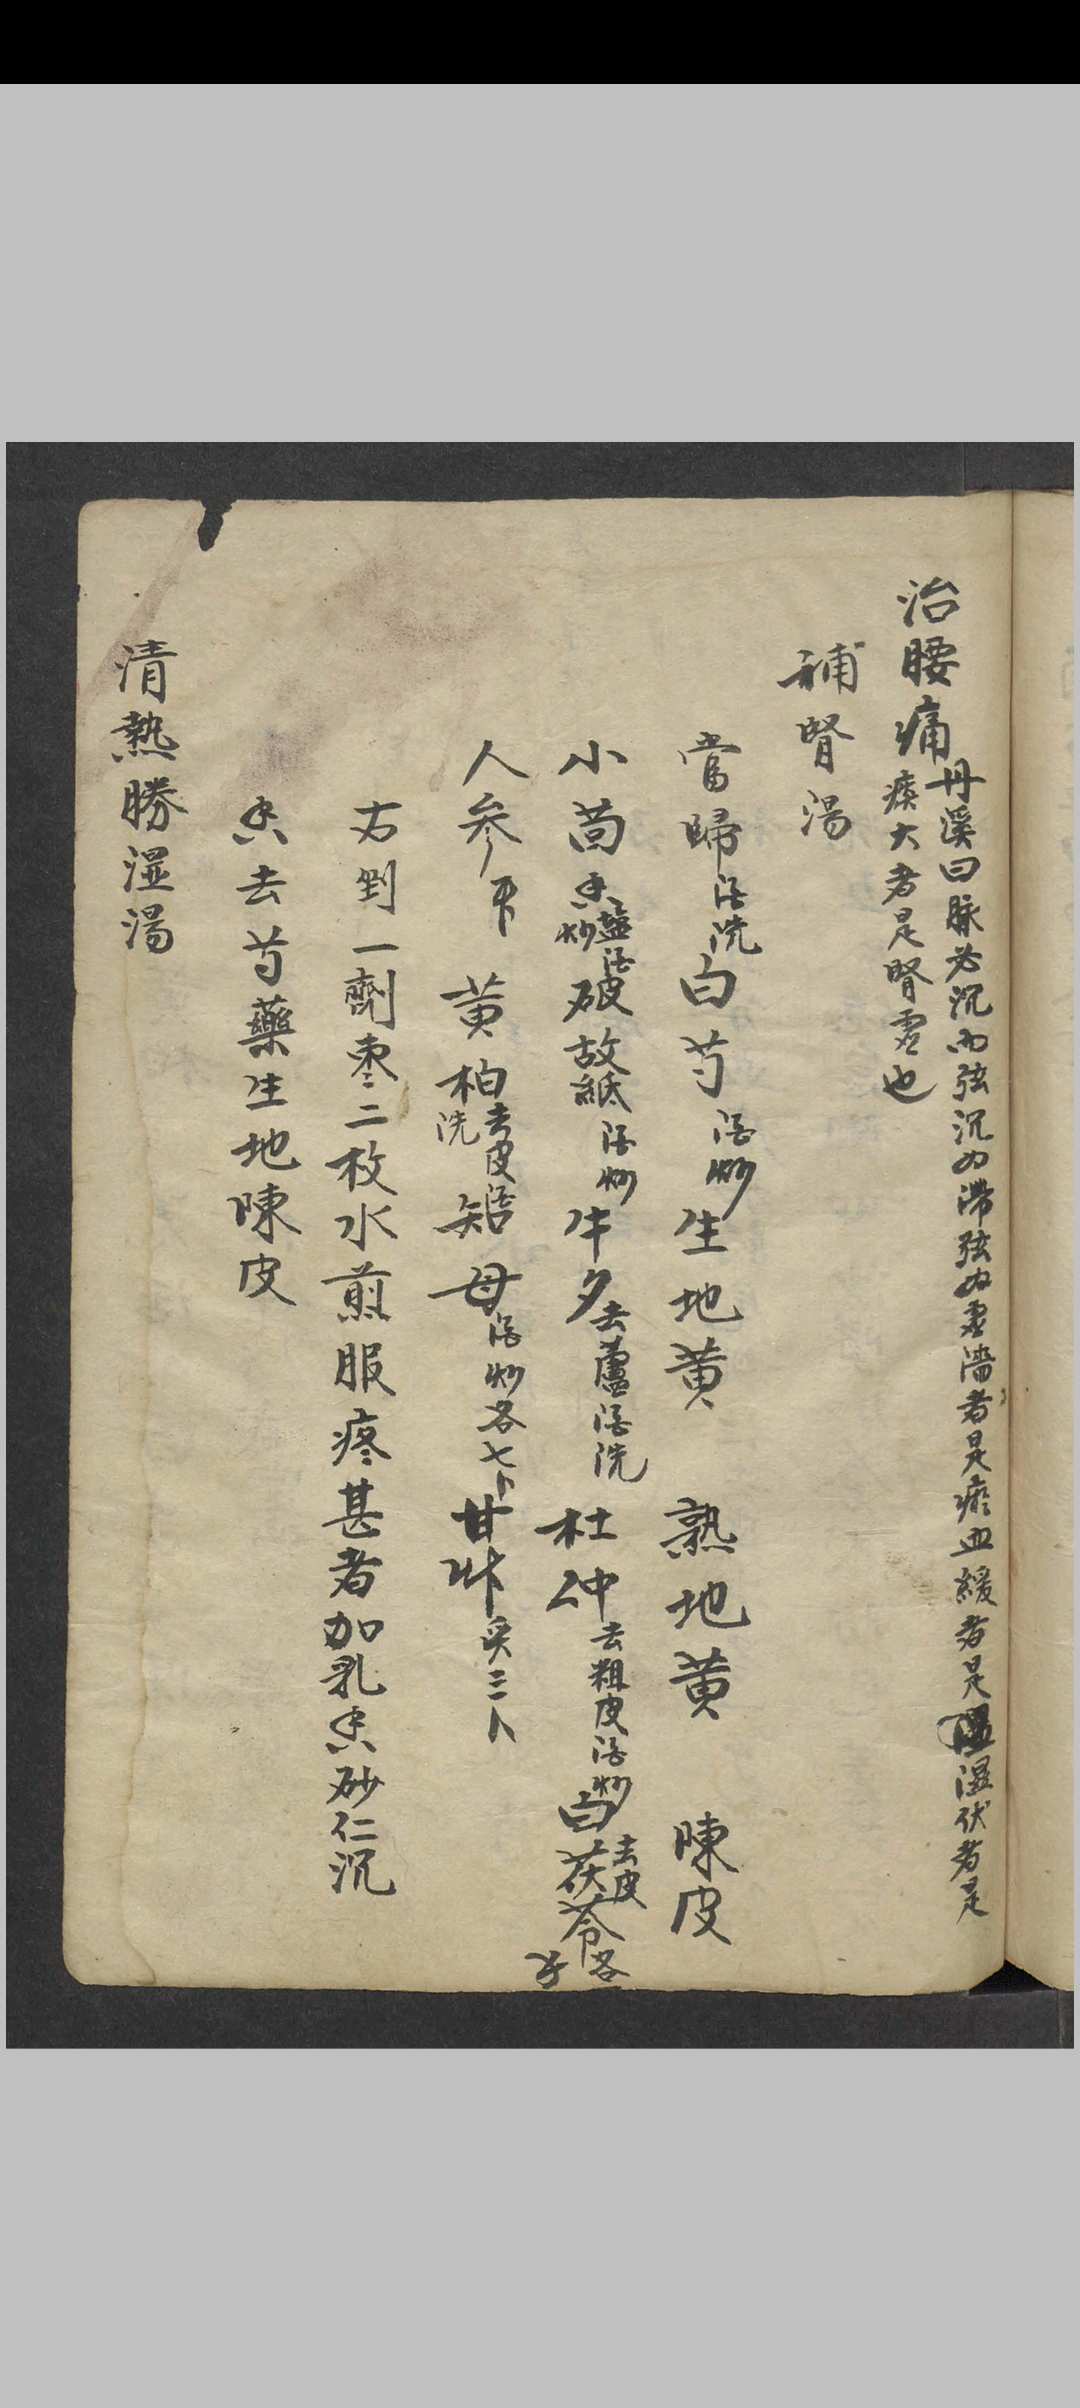 治腰痛 丹溪曰脉必沉而弦沉为滞弦为虚濇者是瘀血緩者是湿伏者是
痰大者是腎虚也
補腎湯
當歸酒洗 白芍酒炒 生地黄 熟地黄 陳皮
小茴香盐酒炒 破故紙酒炒 牛夕去蘆酒洗 杜仲去粗皮酒炒 白茯苓去皮各
人参 黄柏去皮酒洗 知母酒炒各七卜 甘艸炙三卜
右剉一劑枣二枚水煎服疼甚者加乳香砂仁沉
香去芍藥生地陳皮
清熱勝湿湯